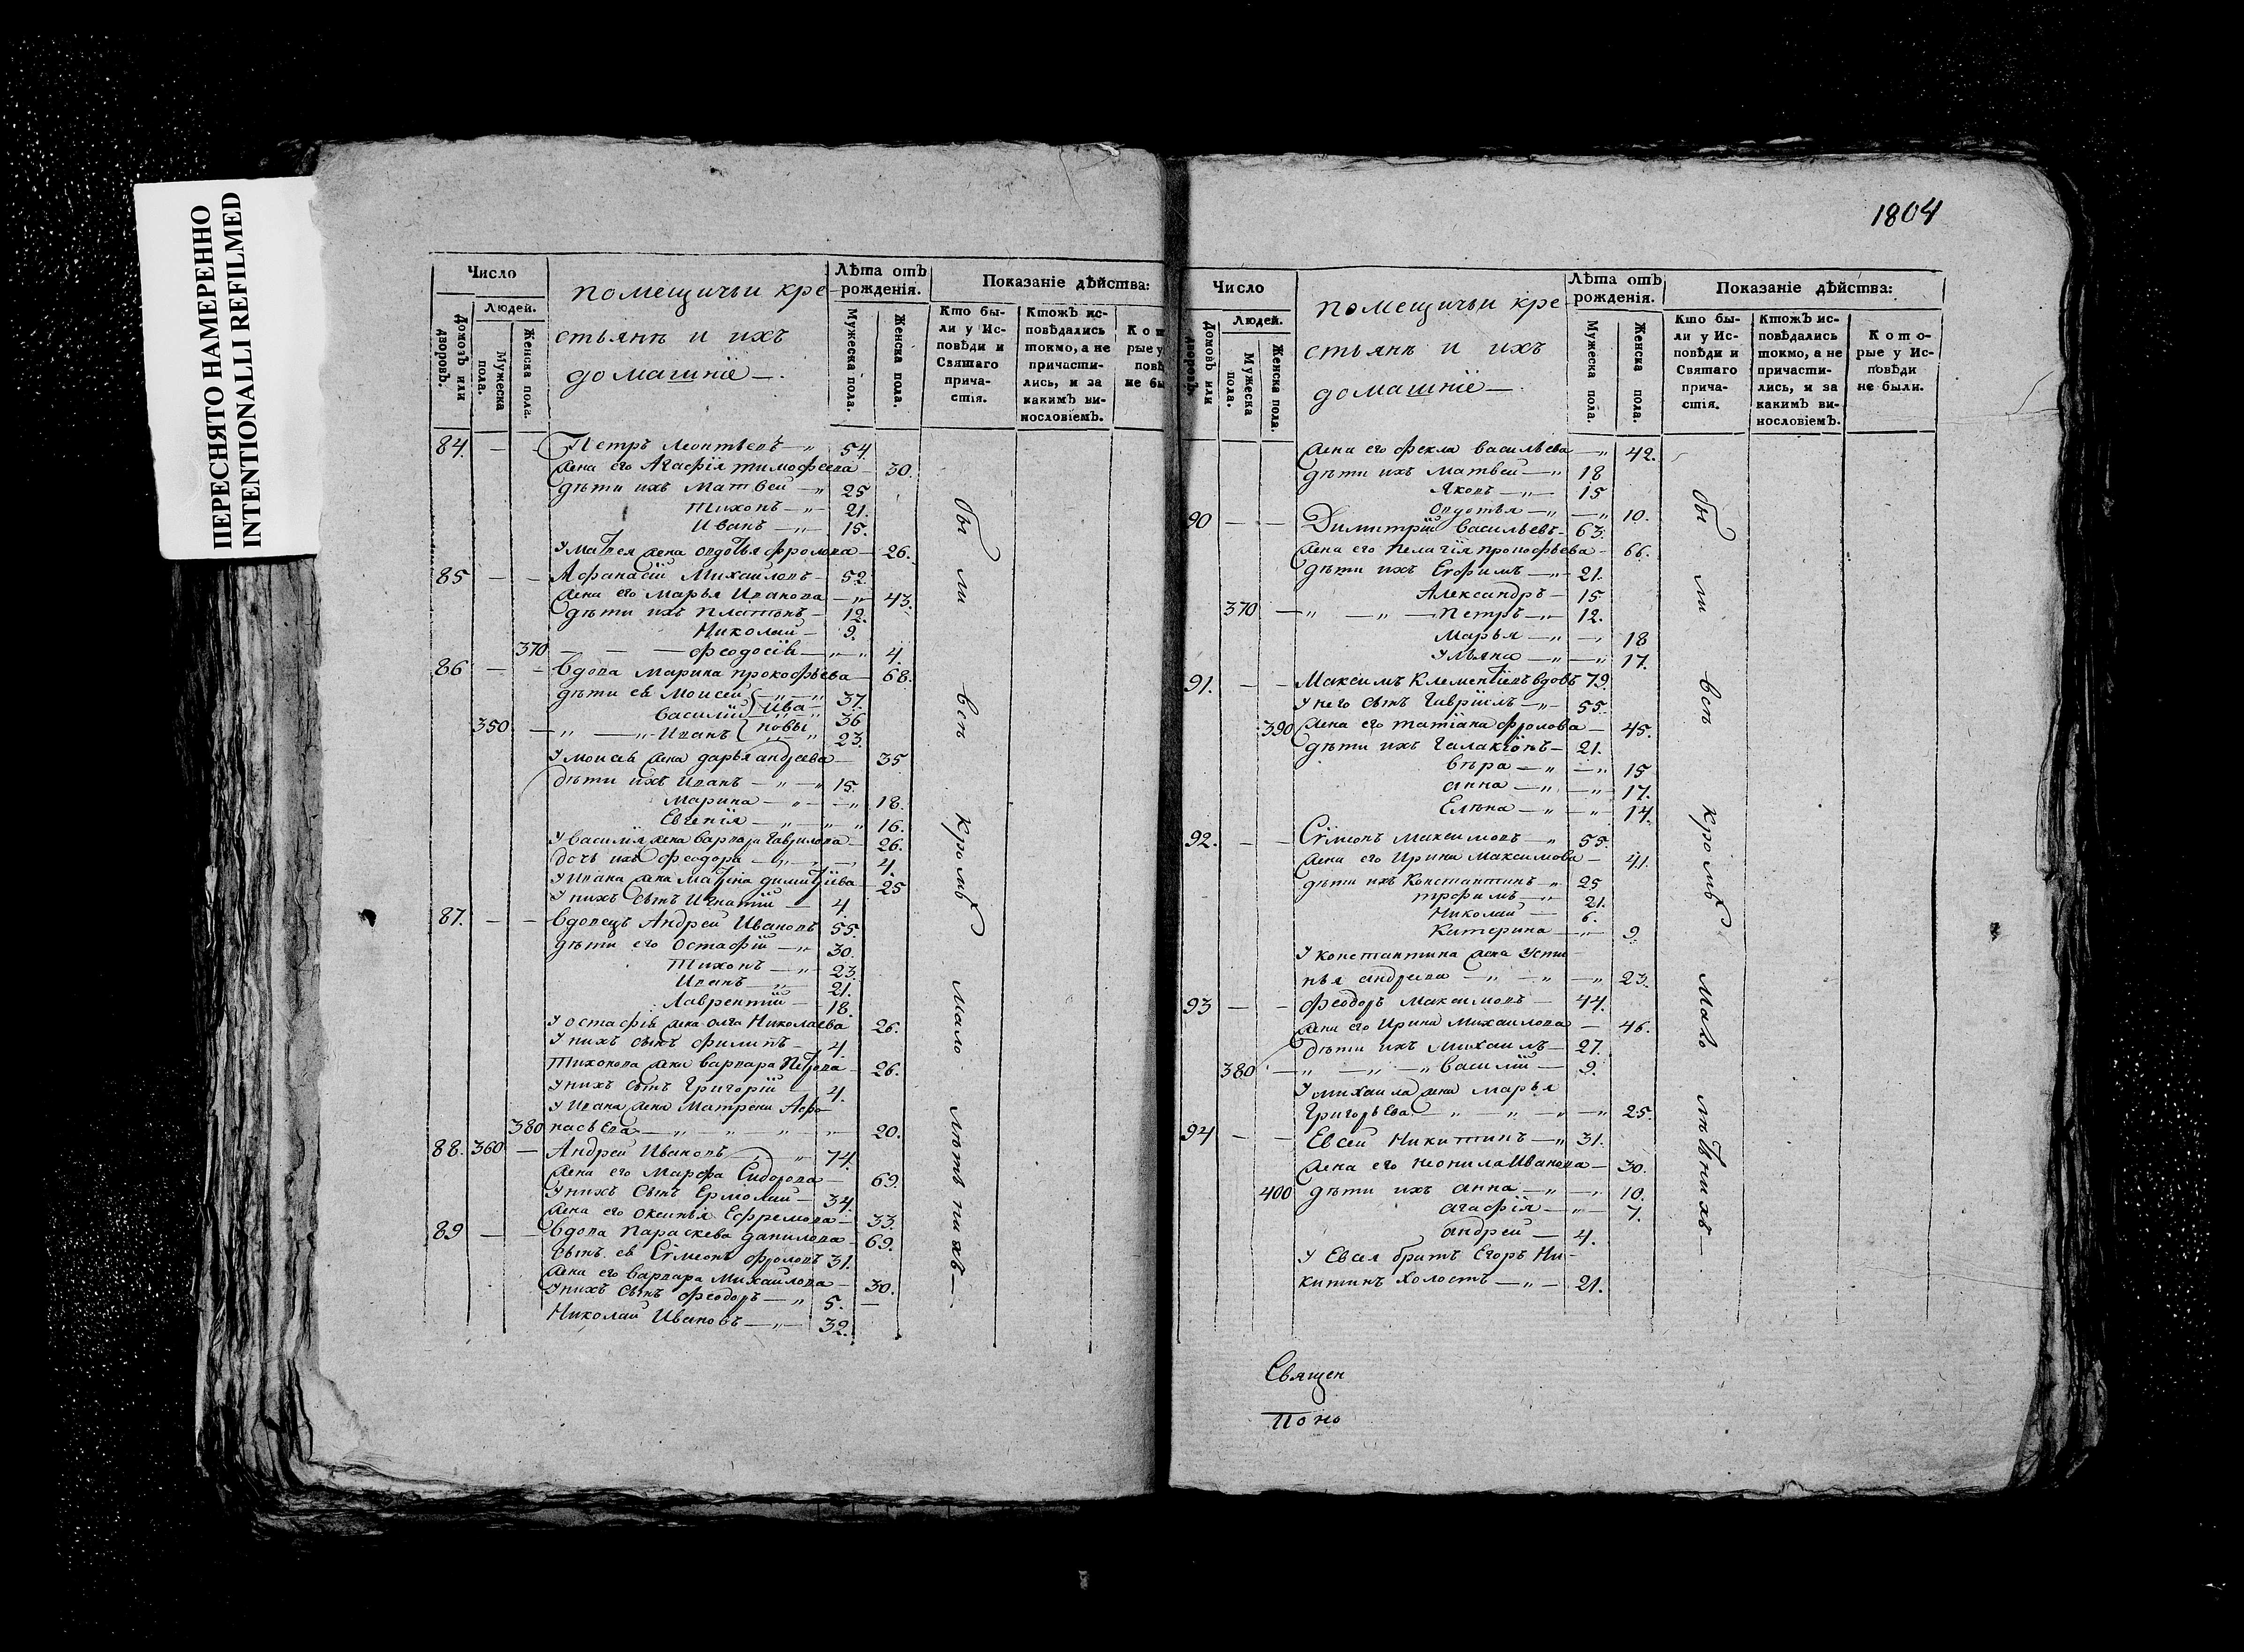 ПЕРЕСНЯТО НАМЕРЕННО
INTENTIONALLI REFILMED
Число
Людей.
Домовъ или дворовъ.
Мужеска пола.
Женска пола.
помещичьи кре-
стьянѣ и ихъ
домашніе —.
Лѣта отъ рожденія.
Мужеска пола.
Женска пола.
Показаніе дѣйства:
Кто бы-
ли у Ис-
повѣди и
Святаго
прича-
стія.
Ктожъ ис-
повѣдались
токмо, а не
причасти-
лись, и за
какимъ ви-
нословіемъ.
Кот
рые у
повѣ
не бы
84. — — Петръ Леонтьевъ — „ 54.
жена его Агафія тимофеева — 30.
дѣти ихъ Матвеи — „ 25
Тихонъ — „ — 21.
Иванъ — „ — 15.
У матвея жена овдотья фролова — 26.
85 — — Афанасій Михаиловъ — 52.
жена его Марья Иванова — „ 43.
дѣти ихъ платонъ — 12.
Николаи — 9.
370 — — — феодосія — „ „ 4.
86 — — вдова марина прокофьева — 68.
дѣти её Моисеи — „ — „ 37.
василій Ива- 36
350 — „ — „ Иванъ новы „ 23.
У моисея жена дарья андреева — 35
дѣти ихъ иванъ — „ — „ 15.
марина — „ — — „ 18.
Евгенія — „ — „ „ 16.
У василія жена варвара гаврилова — 26.
дочь ихъ феодора — „ — „ — 4.
У ивана жена матрена димитріева — 25
У нихъ сынъ игнатіи — 4.
87. — — вдовецъ Андреи Ивановъ 55.
дѣти его остафіи — „ 30.
Тихонъ — „ — 23.
Иванъ — „ 21.
Лаврентіи — 18.
У остафія жена олга Николаева 26.
У нихъ сынъ филипъ — 4.
Тихонова жена варвара петрова — 26.
У нихъ сынъ григоріи — 4.
У ивана жена матрена Афо-
380 насьева — „ „ „ „ 20.
88. 360 — Андреи Ивановъ „ „ 74.
жена его Марфа Сидорова — 69.
У нихъ сынъ Ермолаи — 34.
жена его оксинья Ефремова — 33.
89 — — вдова параскева данилова — 69.
сынъ её Симеонъ фроловъ 31.
жена его варвара михаилова — 30.
У нихъ сынъ феодоръ — „ 5. —
Николаи Ивановъ — „ — 32.
были всѣ кромѣ мало лѣтнихъ —.
1804
Число
Людей.
Домовъ или дворовъ.
Мужеска пола.
Женска пола.
помещичьи кре-
стьянѣ и ихъ
домашніе —
Лѣта отъ рожденія.
Мужеска пола.
Женска пола.
Показаніе дѣйства:
Кто бы-
ли у Ис-
повѣди и
Святаго
прича-
стія.
Ктожъ ис-
повѣдались
токмо, а не
причасти-
лись, и за
какимъ ви-
нословіемъ.
Кото-
рые у Ис-
повѣди
не были.
жена его фекла васильева — „ 42.
дѣти ихъ матвеи — „ 18
Яковъ — „ — 15
овдотья — „ — „ 10.
90 — — Димитріи васильевъ — 63.
жена его пелагія прокофьева — 66.
дѣти ихъ Егфимъ — „ — 21.
Александръ — 15
370 — „ — „ — петръ — „ 12.
марья — „ — „ 18
Ульяна — „ — „ 17.
91. — — Максимъ Клементіевъ вдовъ 79.
У него сынъ гавріилъ — „ — 55.
390 жена его татіана фролова — 45.
дѣти ихъ галактіонъ — 21.
вѣра — „ — „ 15
анна — „ — „ 17.
Елѣна — „ — „ 14.
92. — — Симеонъ максимовъ — „ 55.
жена его ирина максимова — 41.
дѣти ихъ Константинъ — „ 25
трофимъ — „ 21.
Николаи — 6.
Катерина — „ — 9.
У константина жена Усти-
нья андреева — „ — „ — „ 23.
93 — — феодоръ максимовъ — 44.
жена его Ирина михаилова — 46.
дѣти ихъ михаилъ — 27.
380 — „ — „ — „ василіи — 9.
У михаила жена марья
григорьева — „ — „ — „ 25.
94 — — Евсеи Никитинъ — „ 31.
жена его неонила Иванова — 30.
400 дѣти ихъ анна — „ — „ 10.
агафія — „ — 7.
андреи — 4.
У Евсея братъ Егоръ Ни-
китинъ холостъ — „ — 21.
были всѣ кромѣ мало лѣтнихъ —
Священ
Поно